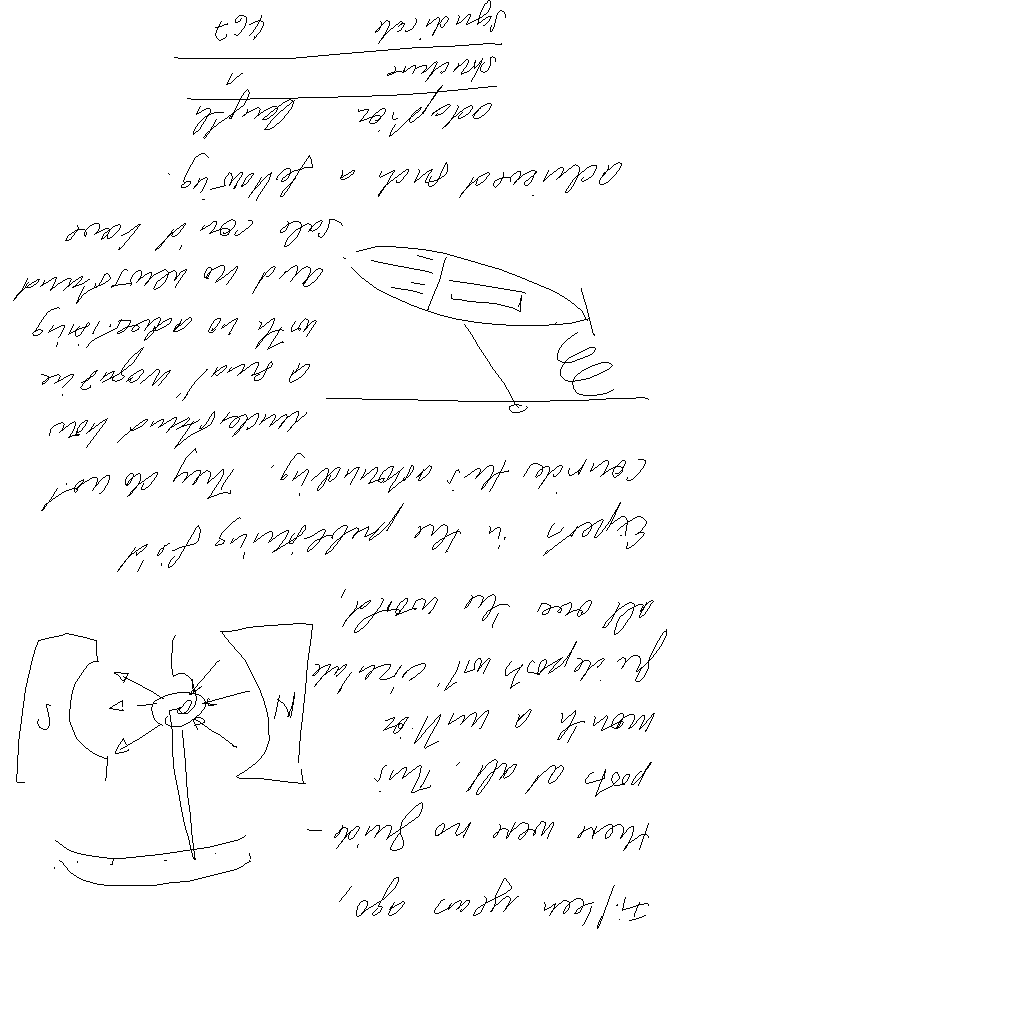 Fifteen years ago,
there were no guide-
posts at all. This
month a million
guideposts will circulate
all over the world,
Experts in the publishing field
consider this astounding. They do not
understand how
a small magazine
with no advertising
and no newsstand
sale could have
achieved such a following.
adaption length
structure 1
Syndicate 467
N
S